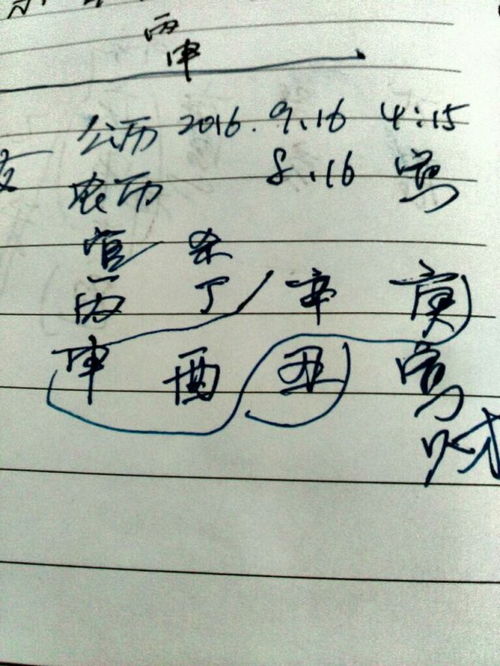 丙
申
公历 2016.9.16 4:15
农历 8.16 寅
官 杀
丙 丁 辛 庚
申 酉 丑 寅
财